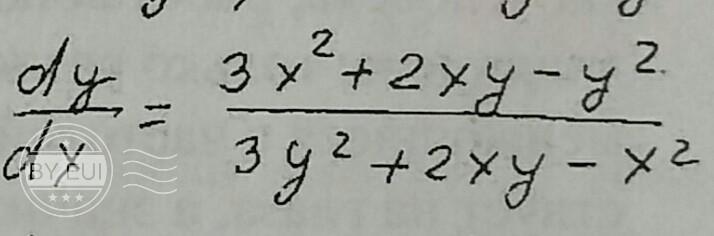 dy/dx = (3x² + 2xy - y²)/(3y² + 2xy - x²)
BY EUI